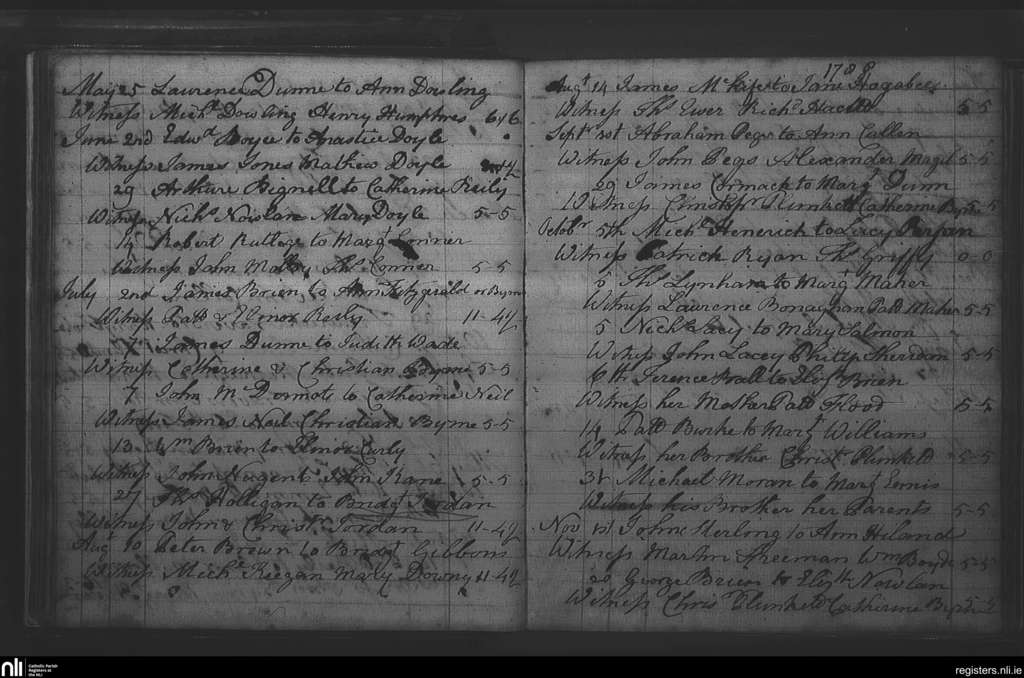 May 25 Lawrence Dunne to Ann Dowling
Witness Michl Dowling Henry Humphres 6 6
June 2nd Edwd Boyce to Anastice Doyle
Witness James Jones Mathew Doyle
29 Arthure Bignell to Catherine Reily
Witness Nichs Nowlan Mary Doyle 5-5
14 Robert Rutlege to Margt Conner
Witness John Molloy Thos Conner 5-5
July 2nd James Brien to Ann Fitzgerald or Byrne
Witness Patt & Elenor Reily 11-4½
7 James Dunne to Judith Wade
Witness Catherine & Christian Byrne 5-5
7 John McDormote to Catherine Neil
Witness James Neil Christian Byrne 5-5
13 Wm Brien to Elinor Curly
Witness John Nugent John Kane 5-5
27 Thos Halligan to Bridgt Jordan
Witness John & Christr Jordan 11-4½
Augt 10 Peter Brown to Bridgt Gibbons
Witness Michl Keegan Mary Downy 11-4½
178
Augt 14 James to Jane
Witness Thos Ewer Richd 5-5
Septr 1st Abraham Pegs to Ann Callen
Witness John Pegs Alexander Magil 5-5
29 James Cormack to Margt Dunn
Witness Christopr Plunkett Catherine Byrne 5-5
Octobr 5th Michl Henerich to Lucy
Witness Patrick Ryan Thos Griffy 0-0
5 Thos Lynham to Margt Maher
Witness Lawrence Patt Maher 5-5
5 Nichs Lacy to Mary Salmon
Witness John Lacey Philip Sheridan 5-5
6th Terence to Brien
Witness her Mother Patt Flood 5-5
14 Patt Burke to Margt Williams
Witness her Brother Christr Plunkett 5-5
31 Michael Moran to Margt Ennis
Witness his Brother her Parents 5-5
Novr 13 John to Ann Heland
Witness Martin Freeman Wm Boyde 5-5
20 George Brien to Elizth Nowlan
Witness Chris Plunkett Catherine Byrne
nli
Catholic Parish
Registers at
the NLI
registers.nli.ie